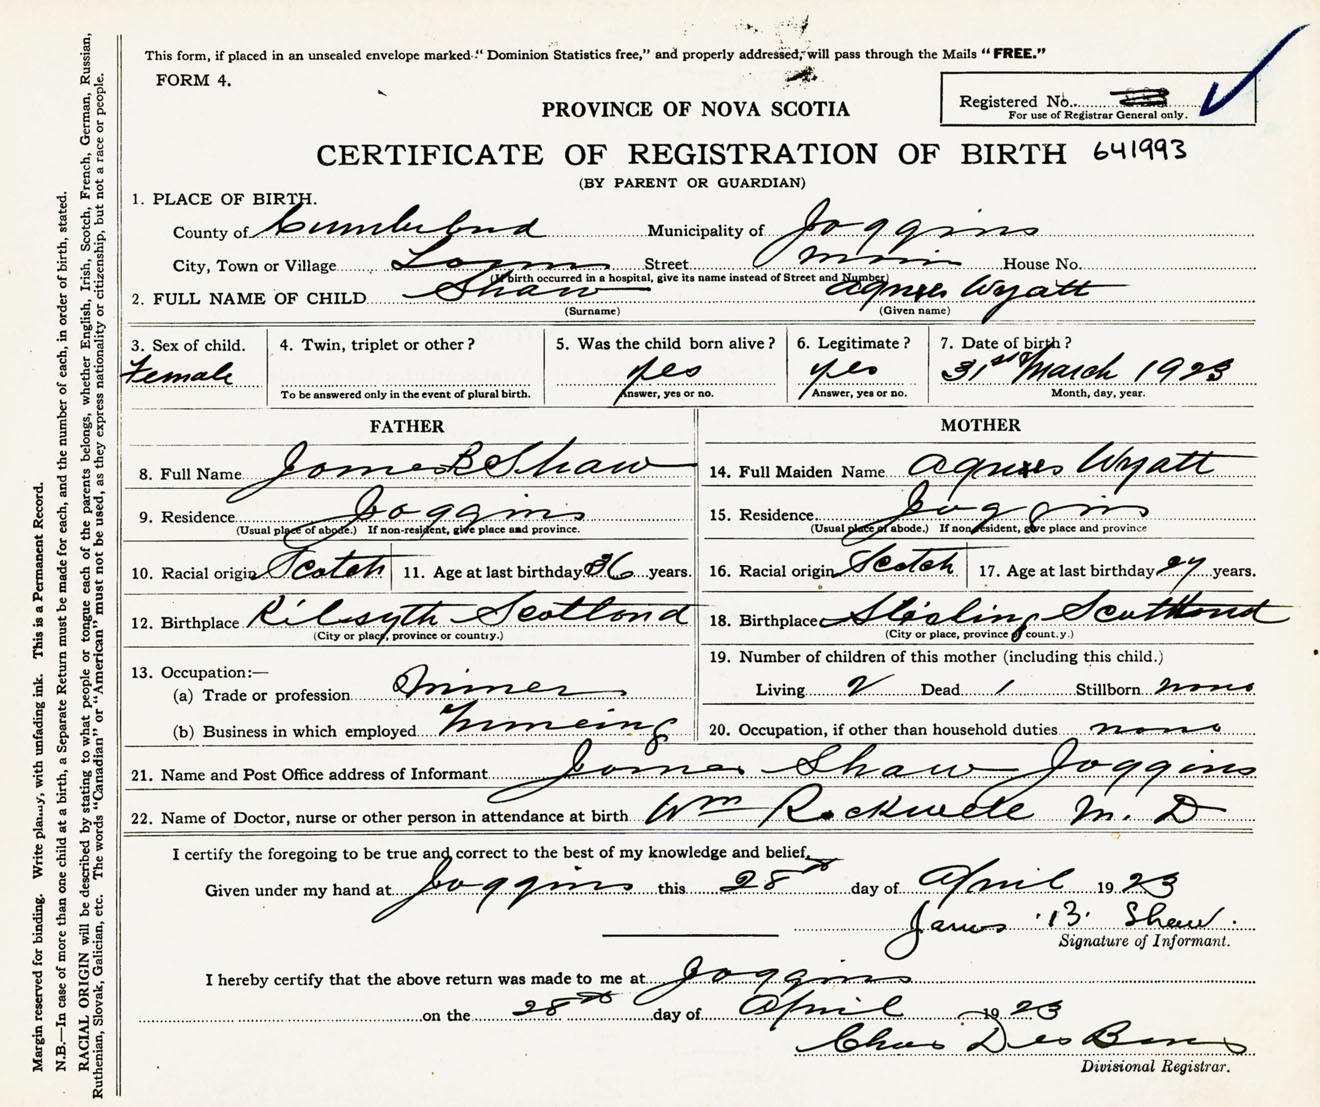 This form, if placed in an unsealed envelope marked "Dominion Statistics free," and properly addressed, will pass through the Mails "FREE."
FORM 4.
Registered No.
For use of Registrar General only.
PROVINCE OF NOVA SCOTIA
CERTIFICATE OF REGISTRATION OF BIRTH 641993
(BY PARENT OR GUARDIAN)
1. PLACE OF BIRTH.
County of Cumberland Municipality of Joggins
City, Town or Village Street Main House No.
(If birth occurred in a hospital, give its name instead of Street and Number)
2. FULL NAME OF CHILD Shaw Agnes Wyatt
(Surname) (Given name)
3. Sex of child. 4. Twin, triplet or other? 5. Was the child born alive? 6. Legitimate? 7. Date of birth?
Female yes yes 31st March 1923
To be answered only in the event of plural birth. Answer, yes or no. Answer, yes or no. Month, day, year.
FATHER MOTHER
8. Full Name James B Shaw 14. Full Maiden Name Agnes Wyatt
9. Residence Joggins 15. Residence Joggins
(Usual place of abode.) If non-resident, give place and province. (Usual place of abode.) If non-resident, give place and province
10. Racial origin Scotch 11. Age at last birthday 36 years. 16. Racial origin Scotch 17. Age at last birthday 27 years.
12. Birthplace Kilsyth Scotland 18. Birthplace Stirling Scotland
(City or place, province or country.) (City or place, province of count.y.)
13. Occupation:— 19. Number of children of this mother (including this child.)
(a) Trade or profession Miner Living 2 Dead 1 Stillborn none
(b) Business in which employed Mineing 20. Occupation, if other than household duties none
21. Name and Post Office address of Informant James Shaw Joggins
22. Name of Doctor, nurse or other person in attendance at birth Wm Rockwell M. D
I certify the foregoing to be true and correct to the best of my knowledge and belief,
Given under my hand at Joggins this 28th day of April 1923
James B. Shaw.
Signature of Informant.
I hereby certify that the above return was made to me at Joggins
on the 28th day of April 1923
Chas Des Barres
Divisional Registrar.
Margin reserved for binding. Write plainly, with unfading ink. This is a Permanent Record.
N.B.—In case of more than one child at a birth, a Separate Return must be made for each, and the number of each, in order of birth, stated.
RACIAL ORIGIN will be described by stating to what people or tongue each of the parents belongs, whether English, Irish, Scotch, French, German, Russian,
Ruthenian, Slovak, Galician, etc. The words "Canadian" or "American" must not be used, as they express nationality or citizenship, but not a race or people.